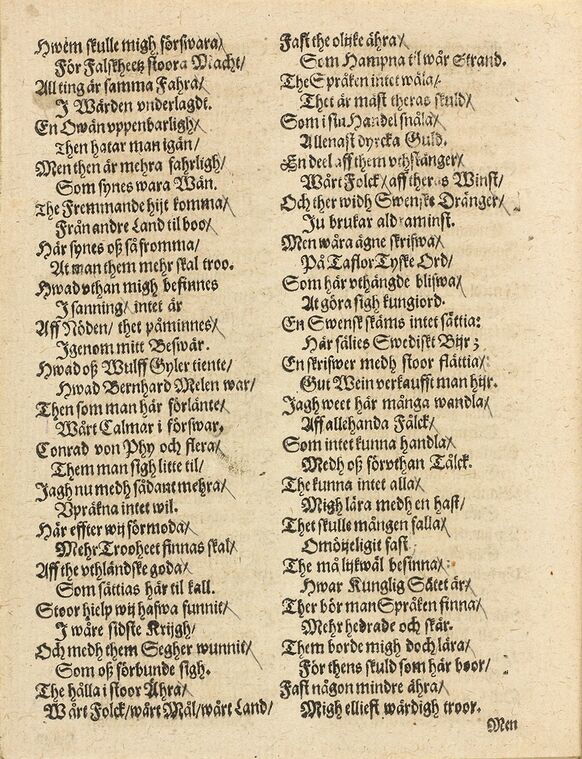 Hwem skulle migh förswara/
För Falskheetz stoora Macht/
All ting är samma Fahra/
J Wärden vnderlagdt.
En Owän vppenbarligh/
Then hatar man igän/
Men then är mehra fahrligh/
Som synes wara Wän.
The Fremmande hijt komma/
Från andre Land til boo/
Här synes oß så fromma/
At man them mehr skal troo.
Hwad vthan migh befinnes
J sanning/ intet är
Aff Nöden/ thet påminnes/
Jgenom mitt Beswär.
Hwad oß Wulff Gyler tiente/
Hwad Bernhard Melen war/
Then som man här förlänte/
Wårt Calmar i förswar.
Conrad von Phy och flera/
Them man sigh litte til/
Jagh nu medh sådant mehra/
Vpräkna intet wil.
Här effter wij förmoda/
Mehr Trooheet finnas skal/
Aff the vthländske goda/
Som sättias här til kall.
Stoor hielp wij hafwa funnit/
J wåre sidste Krijgh/
Och medh them Segher wunnit/
Som oß förbunde sigh.
The hålla i stoor Ähra/
Wårt Folck/wårt Mål/wårt Land/
Fast the olijke ähra/
Som Hampna til wår Strand.
The Språken intet wåla/
Thet är mäst theras skuld/
Som i sin Handel snåla/
Allenast dyrcka Guld.
En deel aff them vthstänger/
Wårt Folck/ aff theras Winst/
Och ther widh Swenske Dränger/
Ju brukar aldraminst.
Men wåra ägne skrifwa/
På Taflor Tyske Ord/
Som här vthängde blifwa/
At göra sigh kungiord.
En Swensk skäms intet sättia:
Här sälies Swediskt Bijr;
En skrifwer medh stoor flättia/
Gut Wein verkaufft man hijr.
Jagh weet här många wandla/
Aff allehanda Fålck/
Som intet kunna handla/
Medh oß förvthan Tålck.
The kunna intet alla/
Migh lära medh en hast/
Thet skulle mången falla/
Omöijeligit fast;
The må lijkwäl besinna/:
Hwar Kunglig Sätet är/
Ther bör man Språken finna/
Mehr hedrade och skär.
Them borde migh doch lära/
För thens skuld som här boor/
Fast någon mindre ähra/
Migh elliest wärdigh troor.
Men